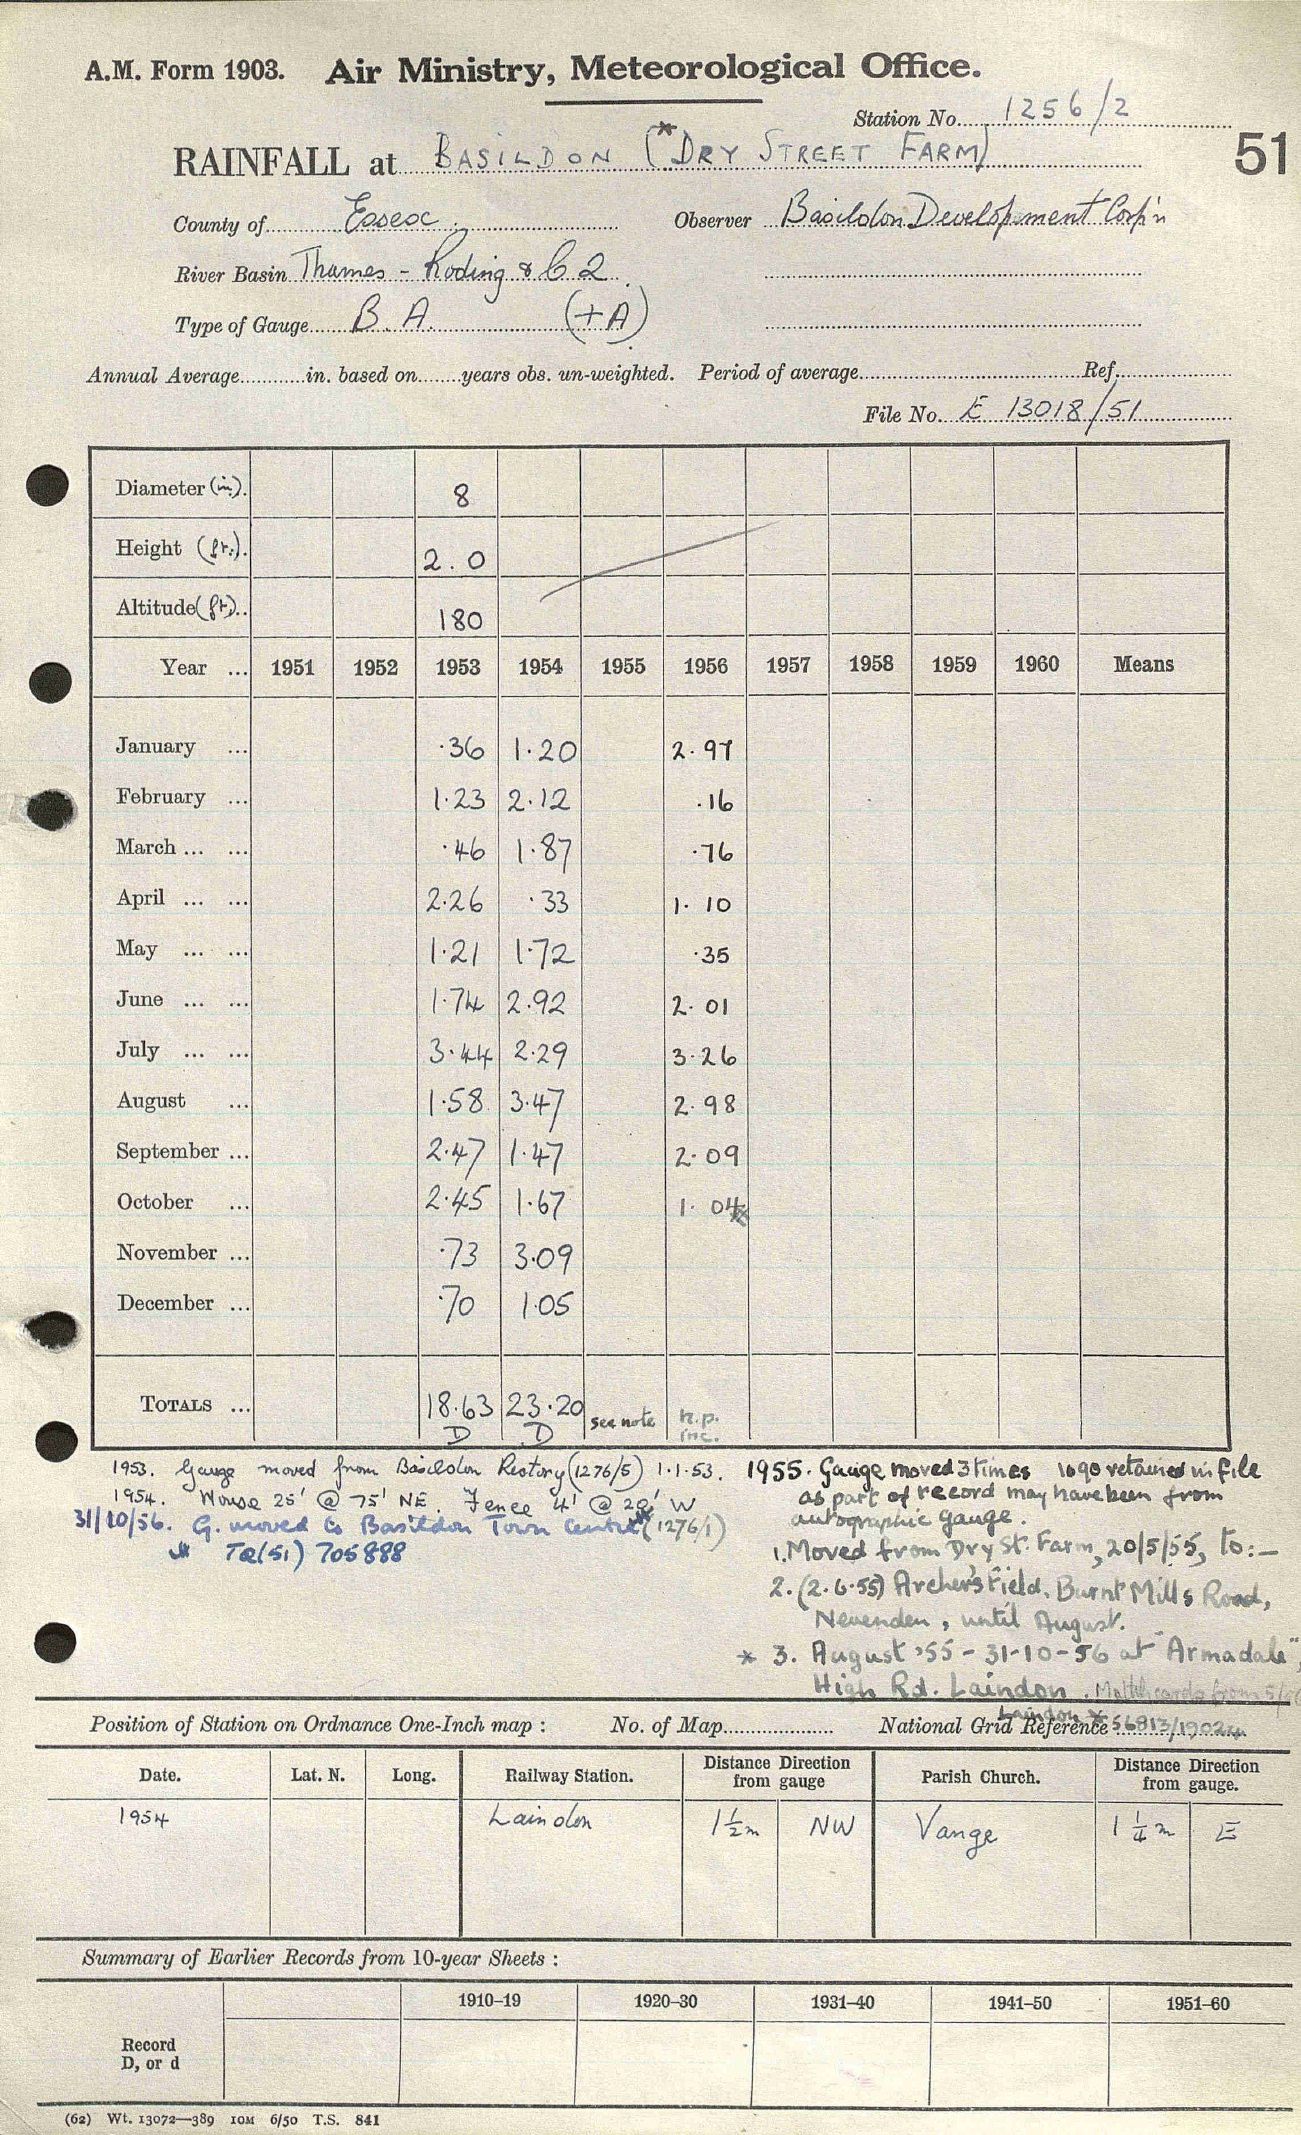 A.M. Form 1903. Air Ministry, Meteorological Office.
Station No. 1256/2
RAINFALL at BASILDON (*DRY STREET FARM)
51
County of Essex Observer Basildon Development Corp'n
River Basin Thames - Roding &
Type of Gauge B.A. (+A)
Annual Average in. based on years obs. un-weighted. Period of average Ref.
File No. E 13018/51
Diameter (in). 8
Height (ft.). 2.0
Altitude (ft). 180
Year ... 1951 1952 1953 1954 1955 1956 1957 1958 1959 1960 Means
January ... ·36 1·20 2·97
February ... 1·23 2·12 ·16
March ... ... ·46 1·87 ·76
April ... ... 2·26 ·33 1·10
May ... ... 1·21 1·72 ·35
June ... ... 1·74 2·92 2·01
July ... ... 3·44 2·29 3·26
August ... 1·58 3·47 2·98
September ... 2·47 1·47 2·09
October ... 2·45 1·67 1·04
November ... ·73 3·09
December ... ·70 1·05
TOTALS ... 18·63 23·20 see note n.p.
D D inc.
1953. Gauge moved from Basildon Rectory (1276/5) 1·1·53.
1954. House 25' @ 75' NE. Fence 4' @ 20' W
31/10/56. G. moved to Basildon Town Centre (1276/1)
Te(51) 705888
1955. Gauge moved 3 times 1090 retained in file
as part of record may have been from
autographic gauge.
1. Moved from Dry St. Farm, 20/5/55, to:—
2. (2·6·55) Archers Field, Burnt Mills Road,
Nevenden, until August.
* 3. August '55 - 31-10-56 at "Armadale",
High Rd. Laindon.
Laindon *
Position of Station on Ordnance One-Inch map : No. of Map National Grid Reference 56813/19024
Date. Lat. N. Long. Railway Station. Distance Direction from gauge Parish Church. Distance Direction from gauge.
1954 Laindon 1½m NW Vange 1¼m E
Summary of Earlier Records from 10-year Sheets :
1910–19 1920–30 1931–40 1941–50 1951–60
Record
D, or d
(62) Wt. 13072—389 10M 6/50 T.S. 841